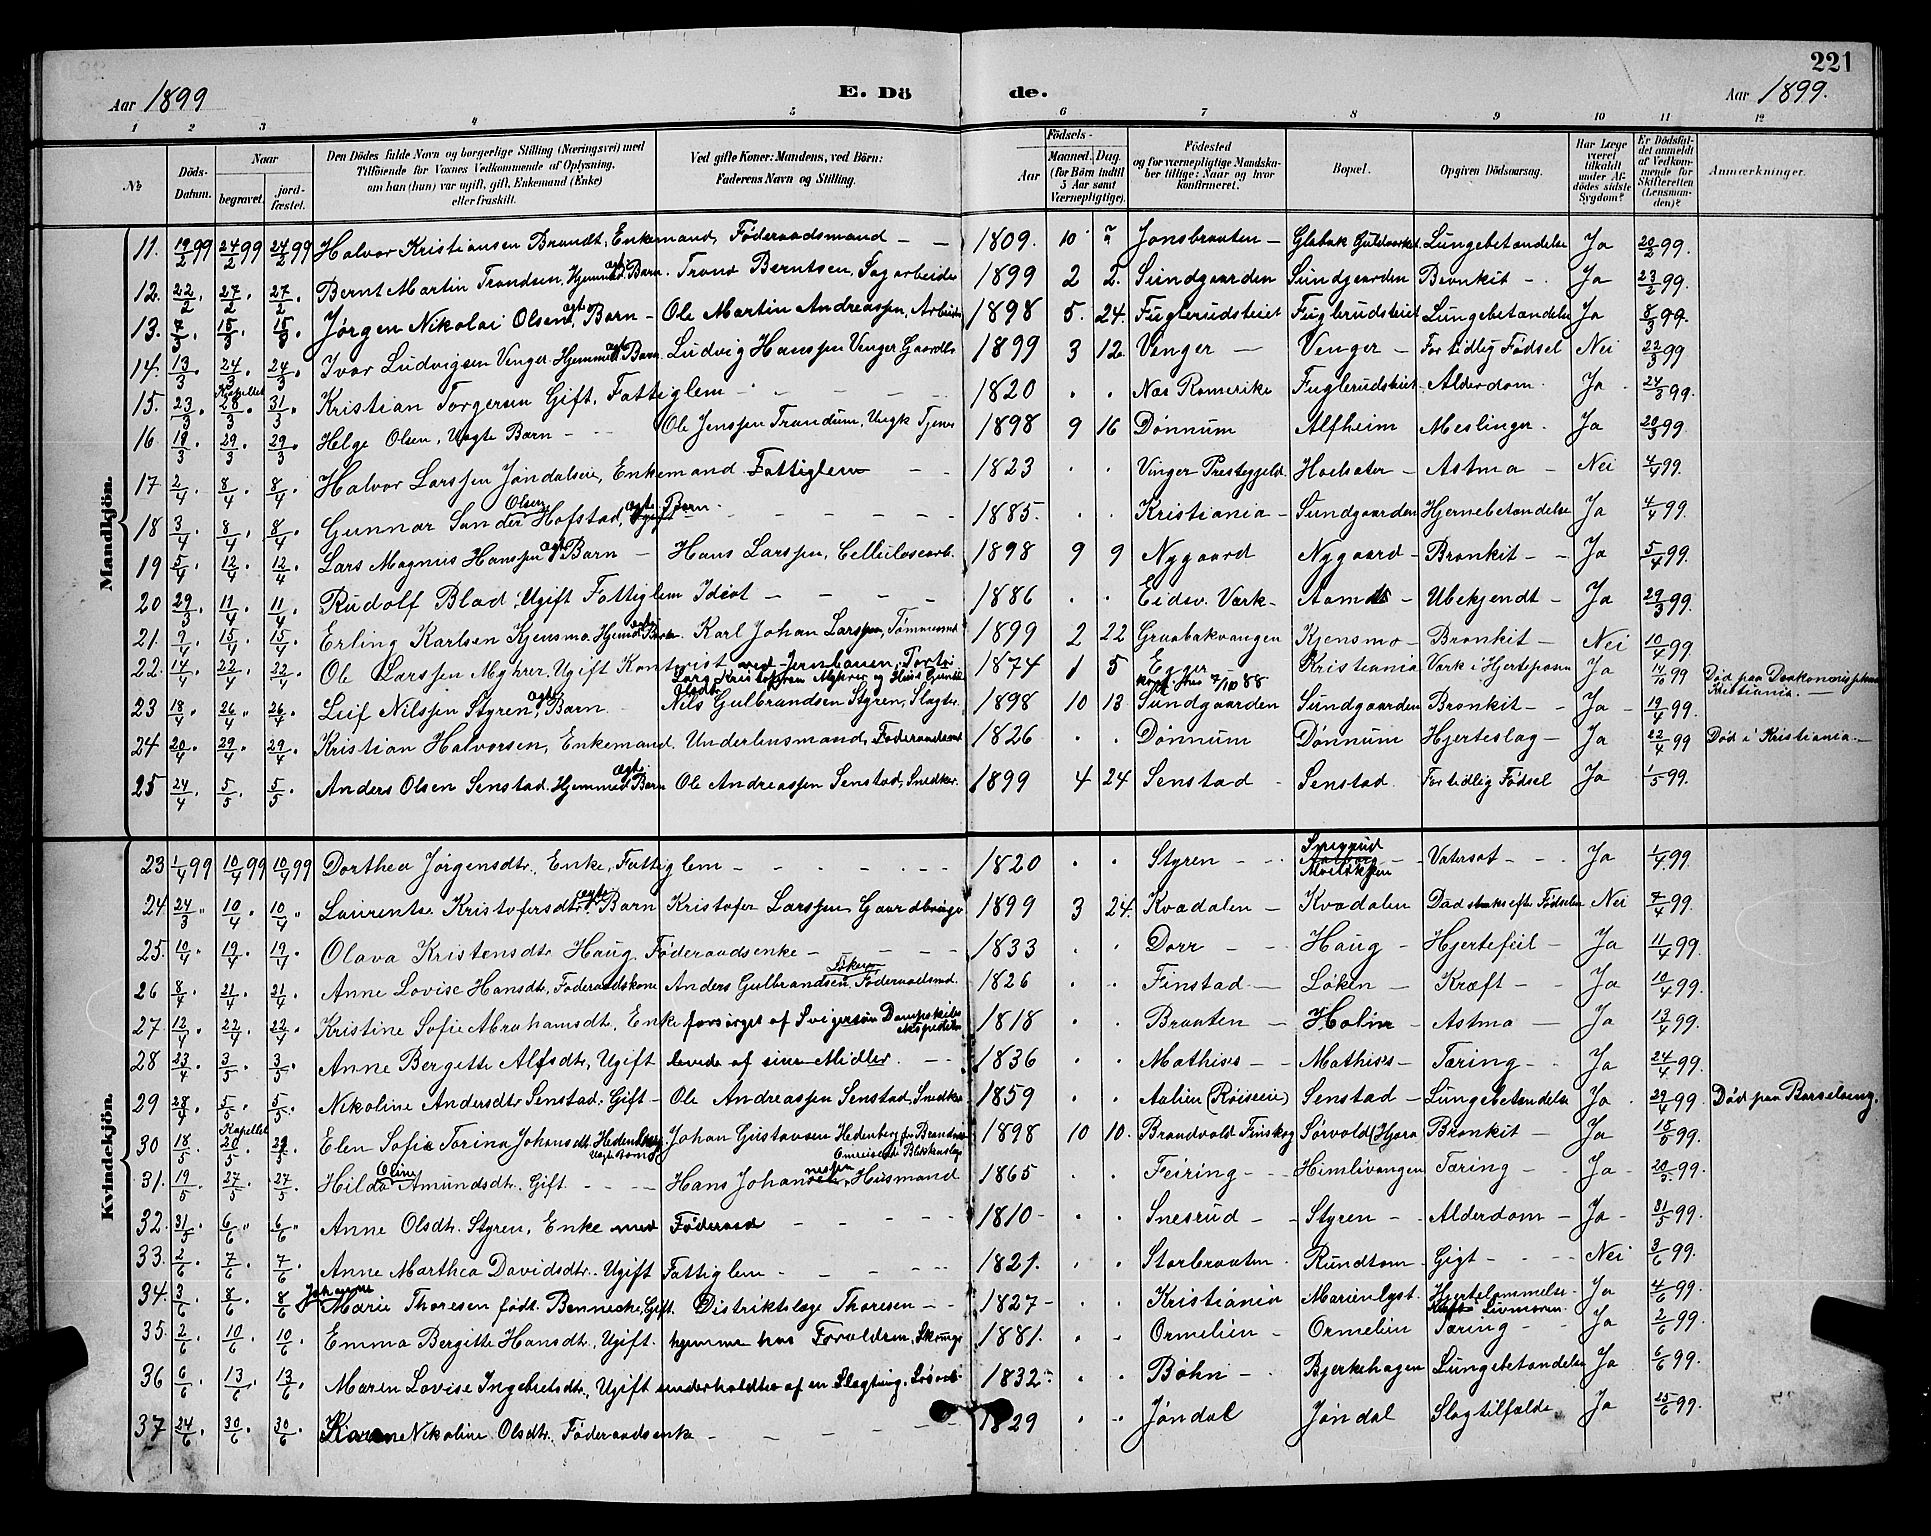 221
Aar 1899 E. Dö de. Aar 1899.
1 2 3 4 5 6 7 8 9 10 11 12
№ Döds-Datum. Naar begravet. jord-fæstet. Den Dödes fulde Navn og borgerlige Stilling (Næringsvei) med Tilföiende for Voxnes Vedkommende af Oplysning, om han (hun) var ugift, gift, Enkemand (Enke) eller fraskilt. Ved gifte Koner: Mandens, ved Börn: Faderens Navn og Stilling. Födsels- Aar Maaned. Dag. (for Börn indtil 5 Aar samt Værnepligtige). Födested og for værnepligtige Mandskaber tillige: Naar og hvor konfirmeret. Bopæl. Opgiven Dödsaarsag. Har Læge været tilkaldt under Afdödes sidste Sygdom? Er Dödsfaldet anmeldt af Vedkommende for Skifteretten (Lensmanden)? Anmærkninger.
Mandkjön.
11. 19/2 99 24/2 99 24/2 99 Halvor Kristiansen Brandt, Enkemand, Føderaadsmand – – 1809. 10 Jonsbraaten – Guldværket Lungebetændelse Ja 20/2 99.
12. 22/2 . 27/2 . 27/2 . Bernt Martin Trondsen, Hjemmed. ægte Barn. Trond Berntsen, Sagarbeider 1899 2 2. Sundgaarden Sundgaarden Bronkit – . Ja 23/2 99.
13. 7/3 . 15/3 . 15/3 . Jørgen Nikolai Olsen, ægte Barn – Ole Martin Andreassen, Arbeider 1898 5. 24. Fuglerudsteiet Fuglerudsteiet Lungebetændelse Ja 8/3 99.
14. 13/3 . 24/3 . 24/3 . Ivar Ludvigsen Venger. Hjemmed. ægte Barn. Ludvig Hanssen Venger Gaardbr. 1899 3 12. Venger – Venger – For tidlig Fødsel Nei 22/3 99
15. 23/3 . Kapellet 28/3 31/3 Kristian Torgersen Gift, Fattiglem – – – 1820 . . Nes Romerike Fuglerudsteiet. Alderdom. Ja . 24/3 99.
16. 19/3 . 29/3 . 29/3 . Helge Olsen, Uægte Barn – – Ole Jenssen Trandum, Ungk. Tjener 1898 9 16 Dønnum Alfheim Meslinger. Ja . 20/3 99.
17 2/4 . 8/4 . 8/4 . Halvor Larssen Jøndalseie, Enkemand. Fattiglem – – 1823 . . Vinger Prestegjeld Hoelsæter – Astma – Nei 4/4 99.
18 3/4 . 8/4 . 8/4 . Gunnar Sander Olsen Hofstad, ægte Barn. – – – – – 1885. . . Kristiania – Sundgaarden Hjernebetændelse Ja 4/4 99
19 5/4 . 12/4 . 12/4 . Lars Magnus Hanssen ægte Barn – Hans Larssen, Celluloscarb. 1898 9 9 Nygaard Nygaard – Bronkit – – Ja 5/4 99.
20 29/3 . 11/4 . 11/4 . Rudolf Blad, Ugift Fattiglem Idiot – – – – 1886 . . Eidsv. Værk – Ubekjendt – Ja . 29/3 99.
21. 9/4 . 15/4 . 15/4 . Erling Karlsen Kjensmo, Hjemmed. ægte Barn. Karl Johan Larssen, Tømmermd 1899 2 22 Graabakvangen Kjensmo – Bronkit – Nei 10/4 99.
22. 14/4 . 22/4 . 22/4 . Ole Larssen Myhrer, Ugift Kontorist ved Jernbanen, Forh. Lars Kristofersen Myhrer og Olsdtr 1874 1 5 Egger – konf. 7/10 88 Kristiania Værk i Hjerteposen Ja 14/10 99 Død paa Kristiania. –
23 18/4 . 26/4 . 26/4 . Leif Nilssen Styren, ægte Barn. Nils Gulbrandsen Styren, Slagter. 1898 10 13 Sundgaarden Sundgaarden Bronkit – – Ja – 19/4 99.
24 20/4 . 29/4 . 29/4 . Kristian Halvorsen, Enkemand. Underlensmand, Føderaadsmd 1826 . . Dønnum Dønnum Hjerteslag – Ja 22/4 99 Død i Kristiania. –
25 24/4 . 5/5 . 5/5 . Anders Olsen Senstad. Hjemmed. ægte Barn Ole Andreassen Senstad, Snedker. 1899 4 24 Senstad – Senstad. For tidlig Fødsel Ja 1/5 99.
Kvindekjön.
23 1/4 99 10/4 99 10/4 99 Dorthea Jørgensdtr., Enke, Fattiglem – – – – – 1820 . . Styren – – Vatersot – – . Ja 1/4 99.
24. 24/3 . 10/4 . 10/4 . Laurentse Kristofersdtr. ægte Barn Kristofer Larssen, Gaardbruger 1899 3 24. Kvædalen – Kvædalen Død straks eft. Fødselen Nei 7/4 99.
25. 10/4 . 19/4 . 19/4 . Olava Kristensdtr. Haug. Føderaadsenke – – – 1833 . . Dorr – – Haug – Hjertefeil – Ja 11/4 99.
26 8/4 . 21/4 . 21/4 . Anne Lovise Hansdtr, Føderaadskone Anders Gulbrandsen Løken Føderaadsmd. 1826 . . Finstad – Løken – Kræft – – Ja 10/4 99.
27. 12/4 . 22/4 . 22/4 . Kristine Sofie Abrahamsdtr., Enke forsørget af Svigersøn Dampskibsekspeditør 1818 . . Braaten – Holm – Astma – – Ja 13/4 99.
28 23/4 . 3/5 . 3/5 . Anne Bergitte Alfsdtr, Ugift levede af sine Midler. – – 1836 . . Mathises – Mathises – Tæring – . Ja 24/4 99.
29 28/4 . 5/5 . 5/5 . Nikoline Andersdtr Senstad. Gift – Ole Andreassen Senstad, Snedker 1859 . . Aalien (Røiseie) Senstad – Lungebetændelse Ja . 29/4 99. Død paa Barselseng.
30 18/5 . Kapellet 20/5 . Elen Sofie Torina Johansdtr Hedenberg Uægte Barn Johan Gustavsen Hedenberg fra Brandv. Blikkenslager 1898 10 10. Brandvold Finskog Sørvold (Hjera Bronkit – Ja – 18/5 99.
31. 19/5 . 27/5 . 27/5 . Hilda Oline Amundsdtr. Gift – – – – Hans Johannessen, Husmand 1865 . . Feiring – – Himlivangen Tæring – Ja – 20/5 99.
32. 31/5 . 6/6 . 6/6 . Anne Olsdtr. Styren, Enke med Føderaad – – – – 1810 – . . Snesrud – – Styren – Alderdom – Ja – 31/5 99.
33. 2/6 . 7/6 . 7/6 . Anne Marthea Davidsdtr. Ugift Fattiglem – – – – – 1821. . . Storbraaten . Rundtom . Gigt – – – Nei 3/6 99.
34. 3/6 . 8/6 . 8/6 Johanne Marie Thoresen født. Bennecke, Gift. Distriktslæge Thoresen – – 1827 – . . Kristiania Marienlyst. Hjertelammelse. Livmoren. Ja . 4/6 99.
35. 2/6 . 10/6 . 10/6 . Emma Bergitte Hansdtr., Ugift. hjemme hos Forældren, 1881. . – Ormelien – Ormelien Tæring – – Ja 2/6 99.
36 6/6 . 13/6 . 13/6 . Maren Lovise Ingebretsdtr., Ugift underholdtes af en Slegting. 1832 – . . Bøhn – . Bjerkehagen Lungebetændelse Ja 6/6 99.
37 24/6 . 30/6 . 30/6 . Karen Nikoline Olsdtr. Føderaadsenke – – – – – – 1829 . . Jøndal Jøndal Slagtilfælde Ja 25/6 99.